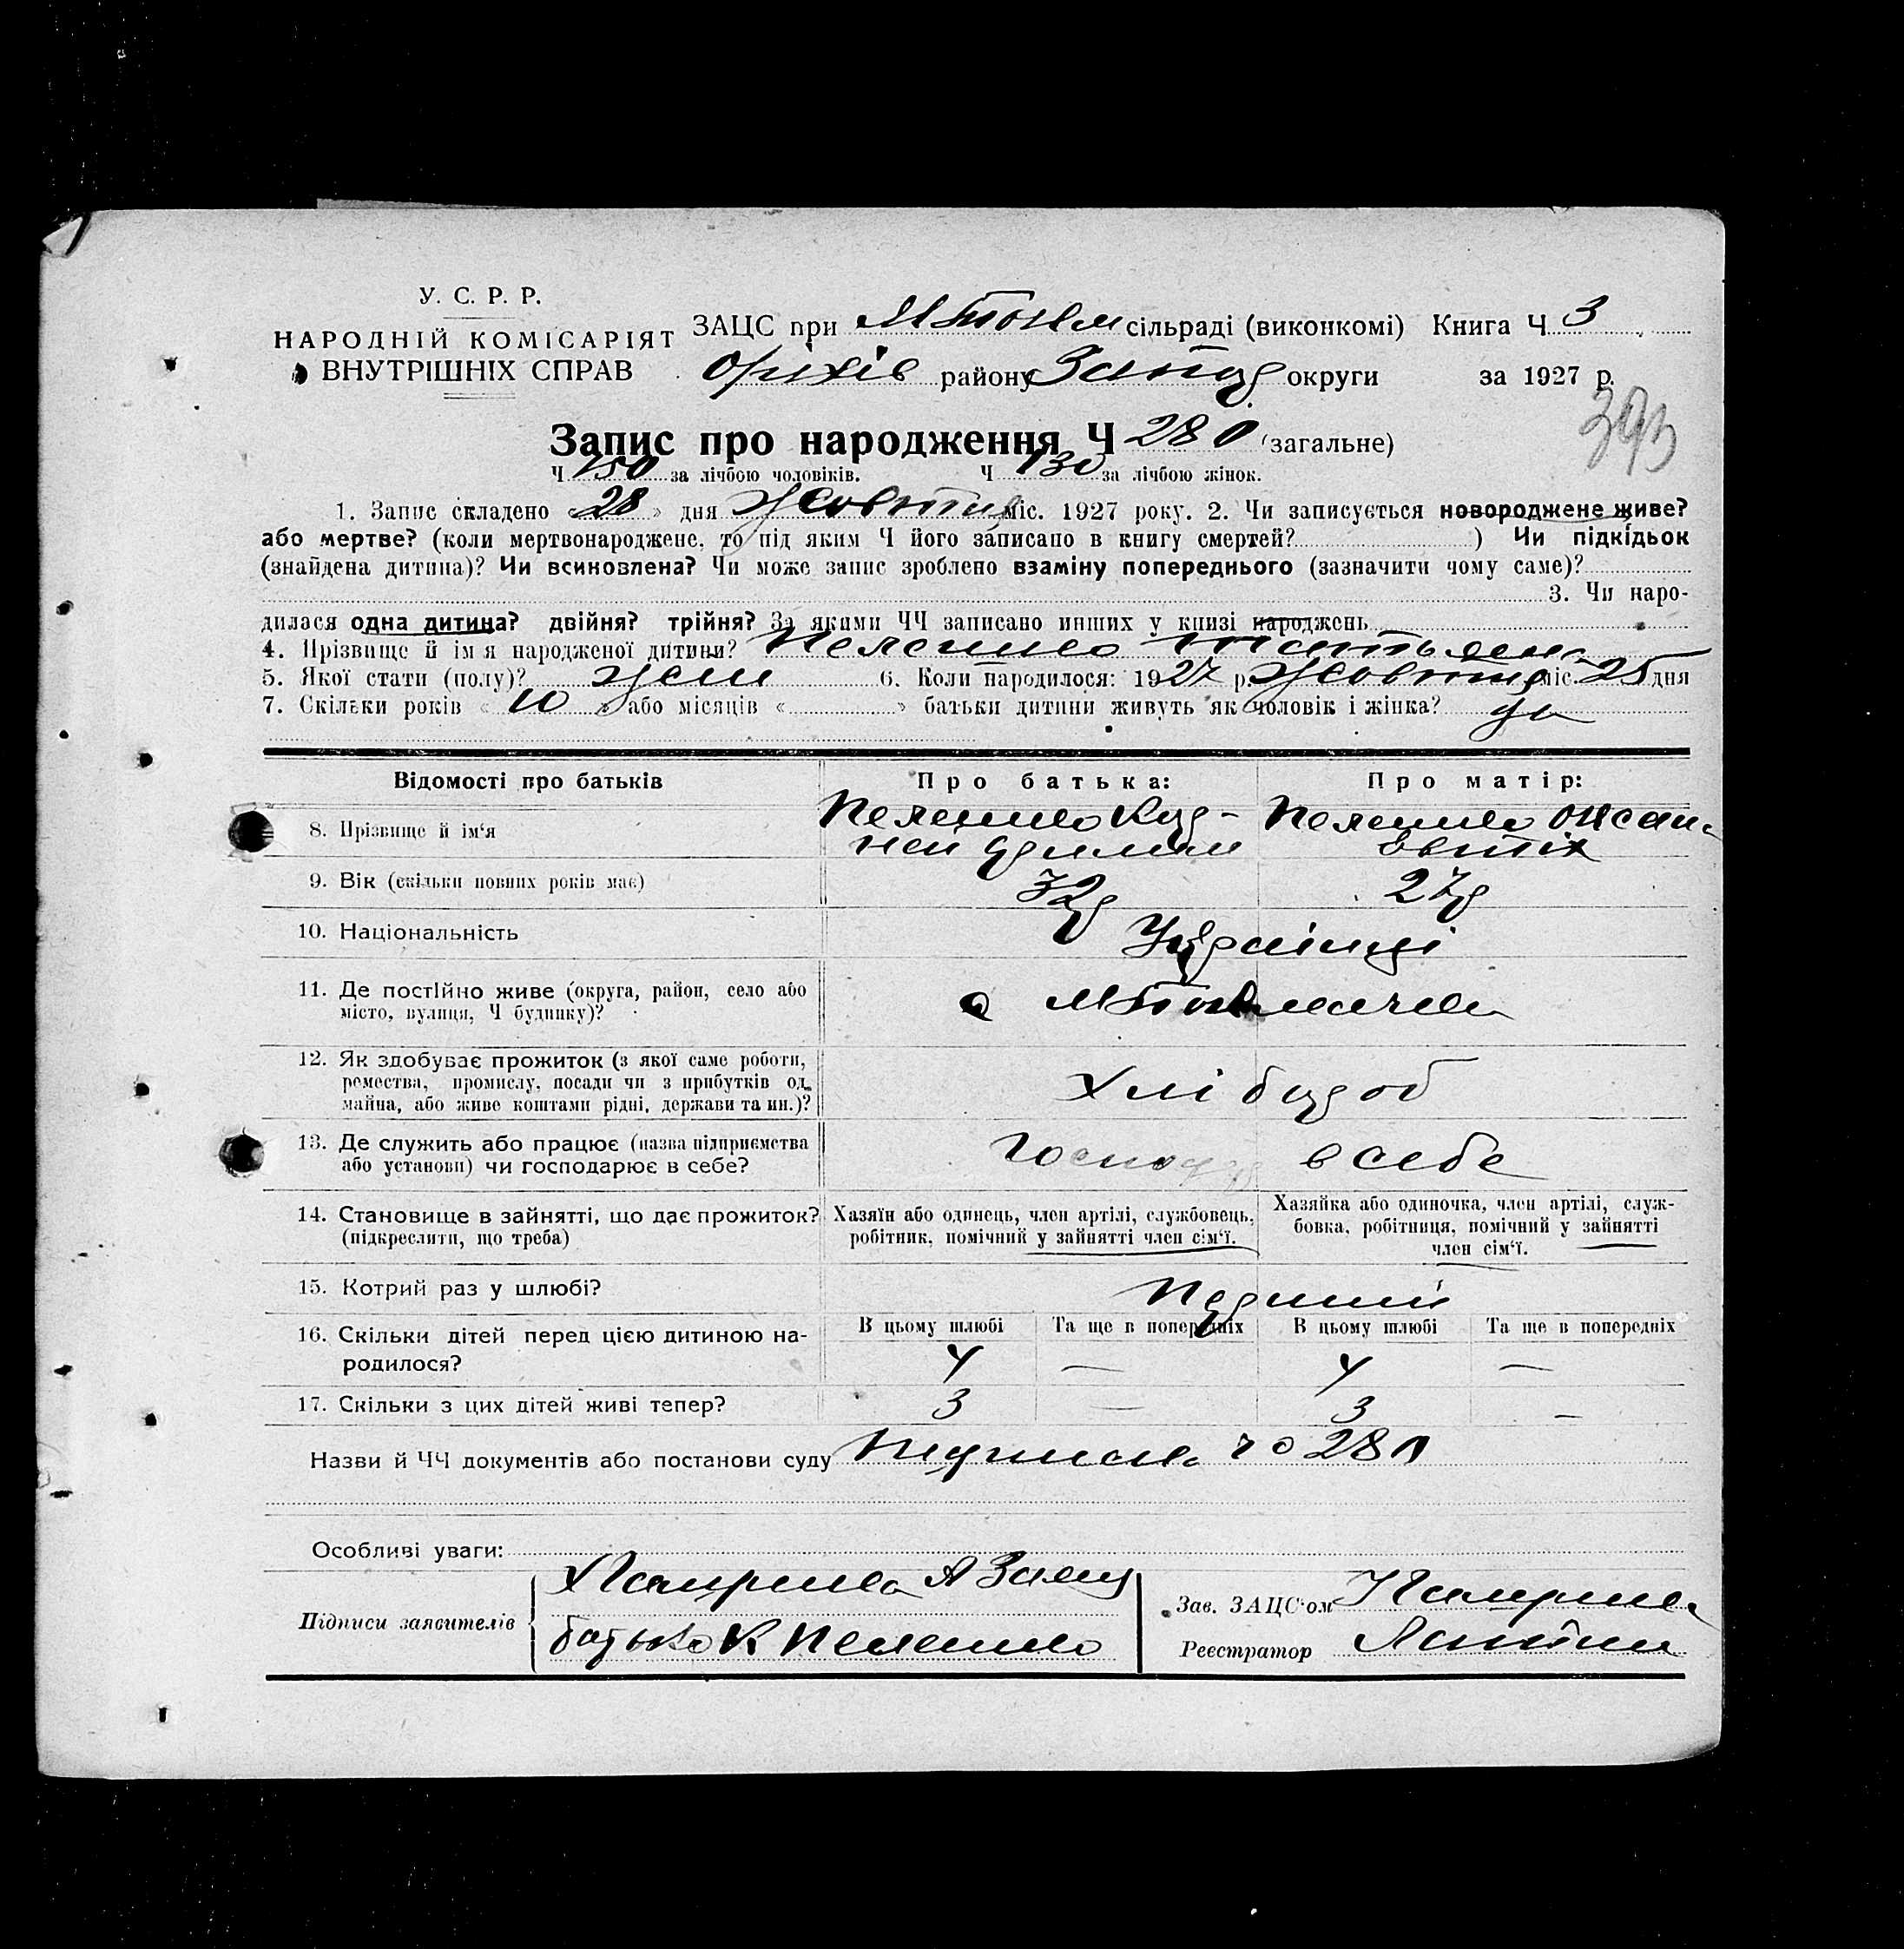 У. С. Р. Р.
НАРОДНІЙ КОМІСАРІЯТ
ВНУТРІШНІХ СПРАВ
ЗАЦС при М Токм сільраді (виконкомі) Книга Ч 3
Оріхів району Запор округи за 1927 р.
393
Запис про народження Ч 280 (загальне)
Ч 150 за лічбою чоловіків. Ч 130 за лічбою жінок.
1. Запис складено « 28 » дня Жовтня міс. 1927 року. 2. Чи записується новороджене живе?
або мертве? (коли мертвонароджене, то під яким Ч його записано в книгу смертей? ) Чи підкідьок
(знайдена дитина)? Чи всиновлена? Чи може запис зроблено взаміну попереднього (зазначити чому саме)?
3. Чи наро-
дилася одна дитина? двійня? трійня? За якими ЧЧ записано инших у книзі народжень
4. Прізвище й ім'я народженої дитини? Пелешко Татьяна
5. Якої стати (полу)? жен 6. Коли народилося: 1927 р. Жовтня міс. 25 дня
7. Скільки років « 10 » або місяців « » батьки дитини живуть як чоловік і жінка? да
Відомості про батьків Про батька: Про матір:
8. Прізвище й ім'я Пелешко Кор- Пелешко Оксана
ней
9. Вік (скільки повних років має) 32 27
10. Національність Українці
11. Де постійно живе (округа, район, село або
місто, вулиця, Ч будинку)?
с М Токмачка
12. Як здобуває прожиток (з якої саме роботи,
ремества, промислу, посади чи з прибутків од
майна, або живе коштами рідні, держави та ин.)?
Хлібороб
13. Де служить або працює (назва підприємства
або установи) чи господарює в себе?
Господар в себе
14. Становище в зайнятті, що дає прожиток?
(підкреслити, що треба)
Хазяїн або одинець, член артілі, службовець,
робітник, помічний у зайнятті член сім'ї.
Хазяйка або одиночка, член артілі, служ-
бовка, робітниця, помічний у зайнятті
член сім'ї.
15. Котрий раз у шлюбі? Перший
16. Скільки дітей перед цією дитиною на-
родилося?
В цьому шлюбі Та ще в попередніх В цьому шлюбі Та ще в попередніх
4 — 4 —
17. Скільки з цих дітей живі тепер? 3 — 3 —
Назви й ЧЧ документів або постанови суду 280
Особливі уваги:
Підписи заявителів
батько К Пелешко
Зав. ЗАЦС'ом
Реєстратор